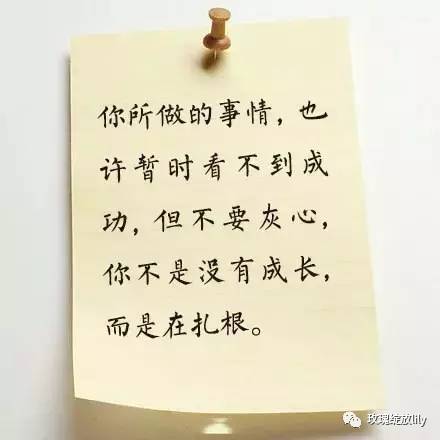 你所做的事情，也
许暂时看不到成
功，但不要灰心，
你不是没有成长，
而是在扎根。
玫瑰绽放lily